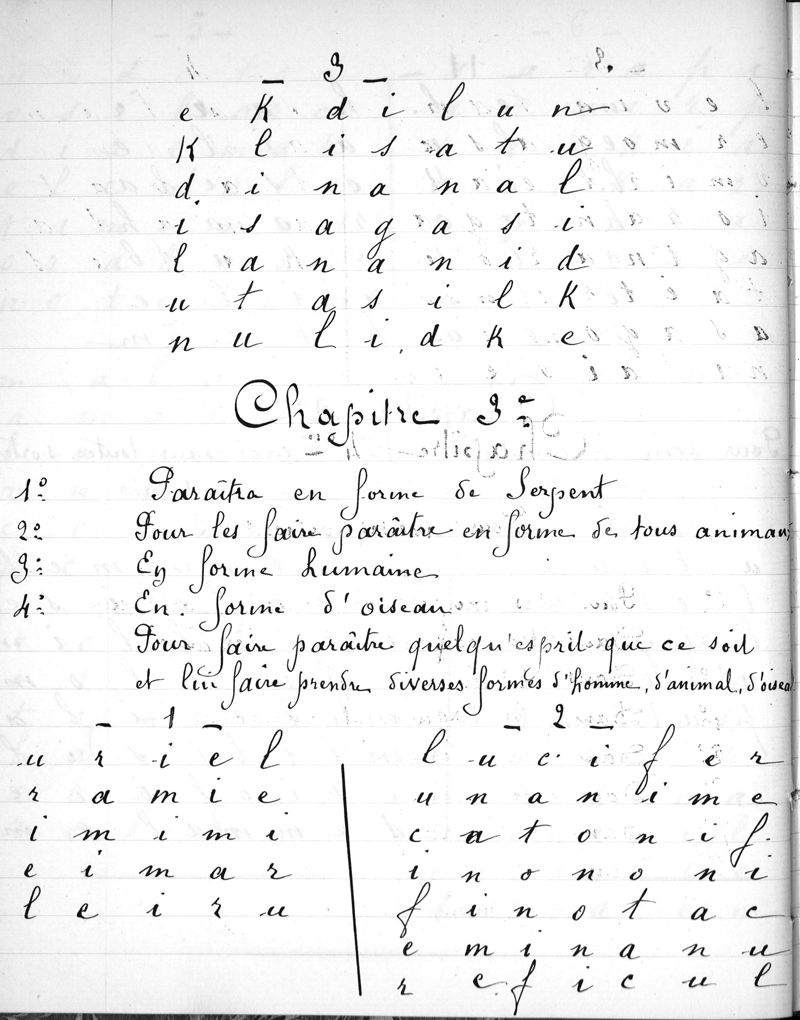 – 3 –
e K d i l u n
K l i s a t u
d i n a n a l
i s a g a s i
l a n a n i d
u t a s i l K
n u l i d K e
Chapitre 3e
1o Paraîtra en forme de Serpent
2o Pour les faire paraître en forme de tous animaux
3o En forme humaine
4o En forme d'oiseau
Pour faire paraître quelqu'esprit que ce soit
et lui faire prendre diverses formes d'homme, d'animal, d'oiseau
– 1 –
u r i e l
r a m i e
i m i m i
e i m a r
l e i r u
– 2 –
l u c i f e r
u n a n i m e
c a t o n i f
i n o n o n i
f i n o t a c
e m i n a n u
r e f i c u l